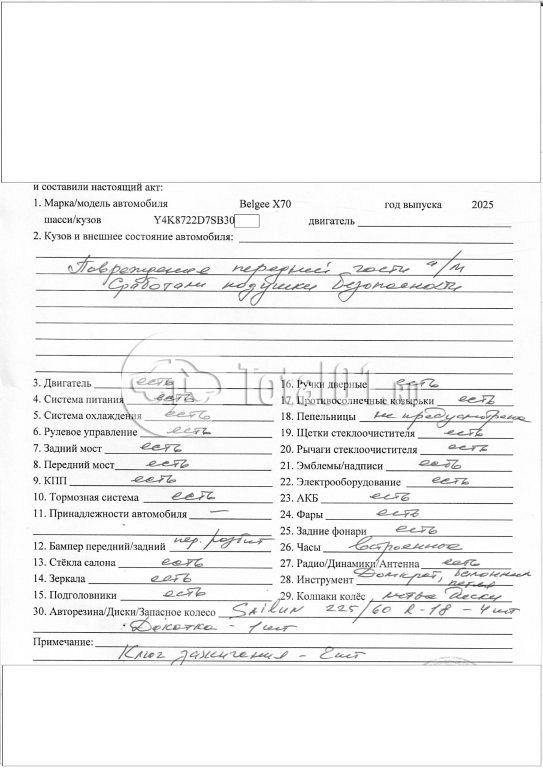 и составили настоящий акт:
1. Марка/модель автомобиля Belgee X70 год выпуска 2025
шасси/кузов Y4K8722D7SB30 двигатель
2. Кузов и внешнее состояние автомобиля:
Повреждения передней части а/м
Сработали подушки безопасности
3. Двигатель есть 16. Ручки дверные есть
4. Система питания есть 17. Противосолнечные козырьки есть
5. Система охлаждения есть 18. Пепельницы не предусмотрена
6. Рулевое управление есть 19. Щетки стеклоочистителя есть
7. Задний мост есть 20. Рычаги стеклоочистителя есть
8. Передний мост есть 21. Эмблемы/надписи есть
9. КПП есть 22. Электрооборудование есть
10. Тормозная система есть 23. АКБ есть
11. Принадлежности автомобиля — 24. Фары есть
25. Задние фонари есть
12. Бампер передний/задний пер. разбит 26. Часы встроенное
13. Стёкла салона есть 27. Радио/Динамики/Антенна есть
14. Зеркала есть 28. Инструмент Домкрат, балонный
петля
15. Подголовники есть 29. Колпаки колёс литые диски
30. Авторезина/Диски/Запасное колесо Sailun 225/60 R-18 - 4шт
Докатка - 1шт
Примечание:
Ключ зажигания - 2шт
Total01.ru